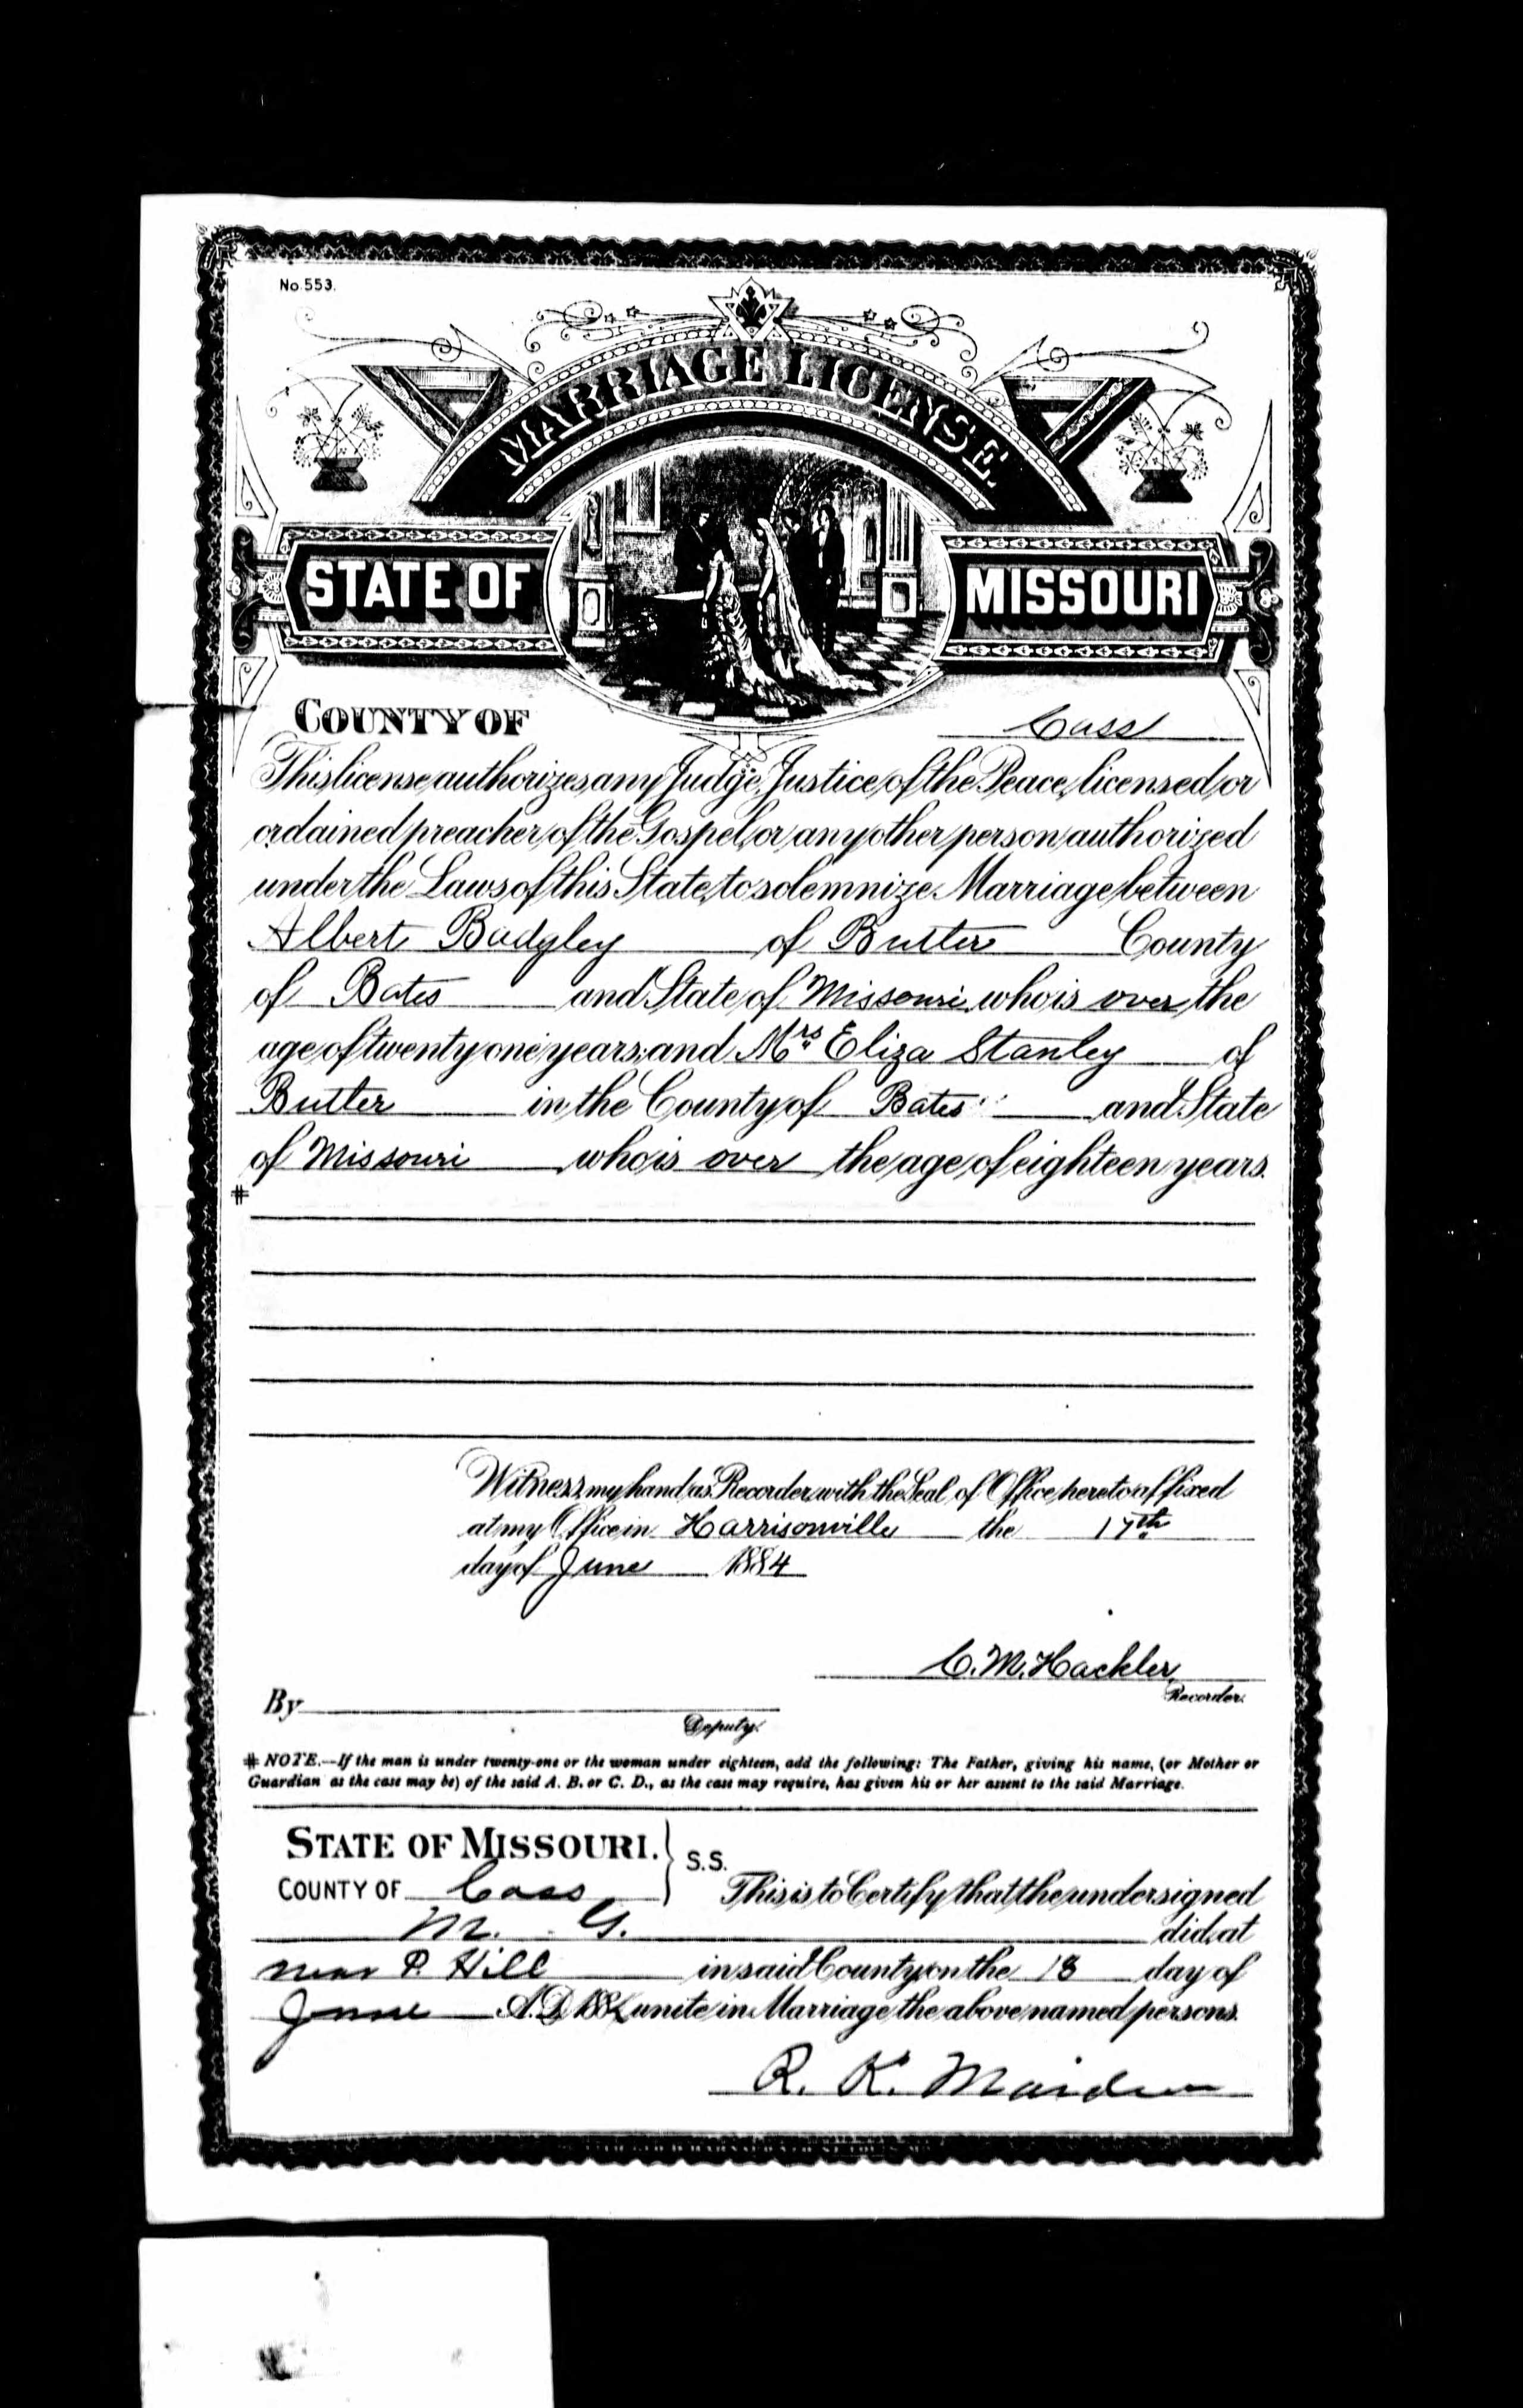 No. 553.
MARRIAGE LICENSE.
STATE OF MISSOURI
COUNTY OF Cass
This license authorizes any Judge, Justice of the Peace, licensed or
ordained preacher of the Gospel, or any other person authorized
under the Laws of this State, to solemnize Marriage between
Albert Badgley of Butler County
of Bates and State of Missouri who is over the
age of twenty one years, and Mrs Eliza Stanley of
Butler in the County of Bates and State
of Missouri who is over the age of eighteen years.
#
Witness my hand as Recorder, with the Seal of Office hereto affixed
at my Office in Harrisonville the 17th
day of June 1884
C. M. Hackler,
Recorder.
By
Deputy.
# NOTE.—If the man is under twenty-one or the woman under eighteen, add the following: The Father, giving his name, (or Mother or
Guardian as the case may be) of the said A. B. or C. D., as the case may require, has given his or her assent to the said Marriage.
STATE OF MISSOURI. } S.S.
COUNTY OF Cass This is to Certify that the undersigned
M. G. did at
near P. Hill in said County on the 18 day of
June A.D. 1884 unite in Marriage the above named persons.
R. K. Maiden